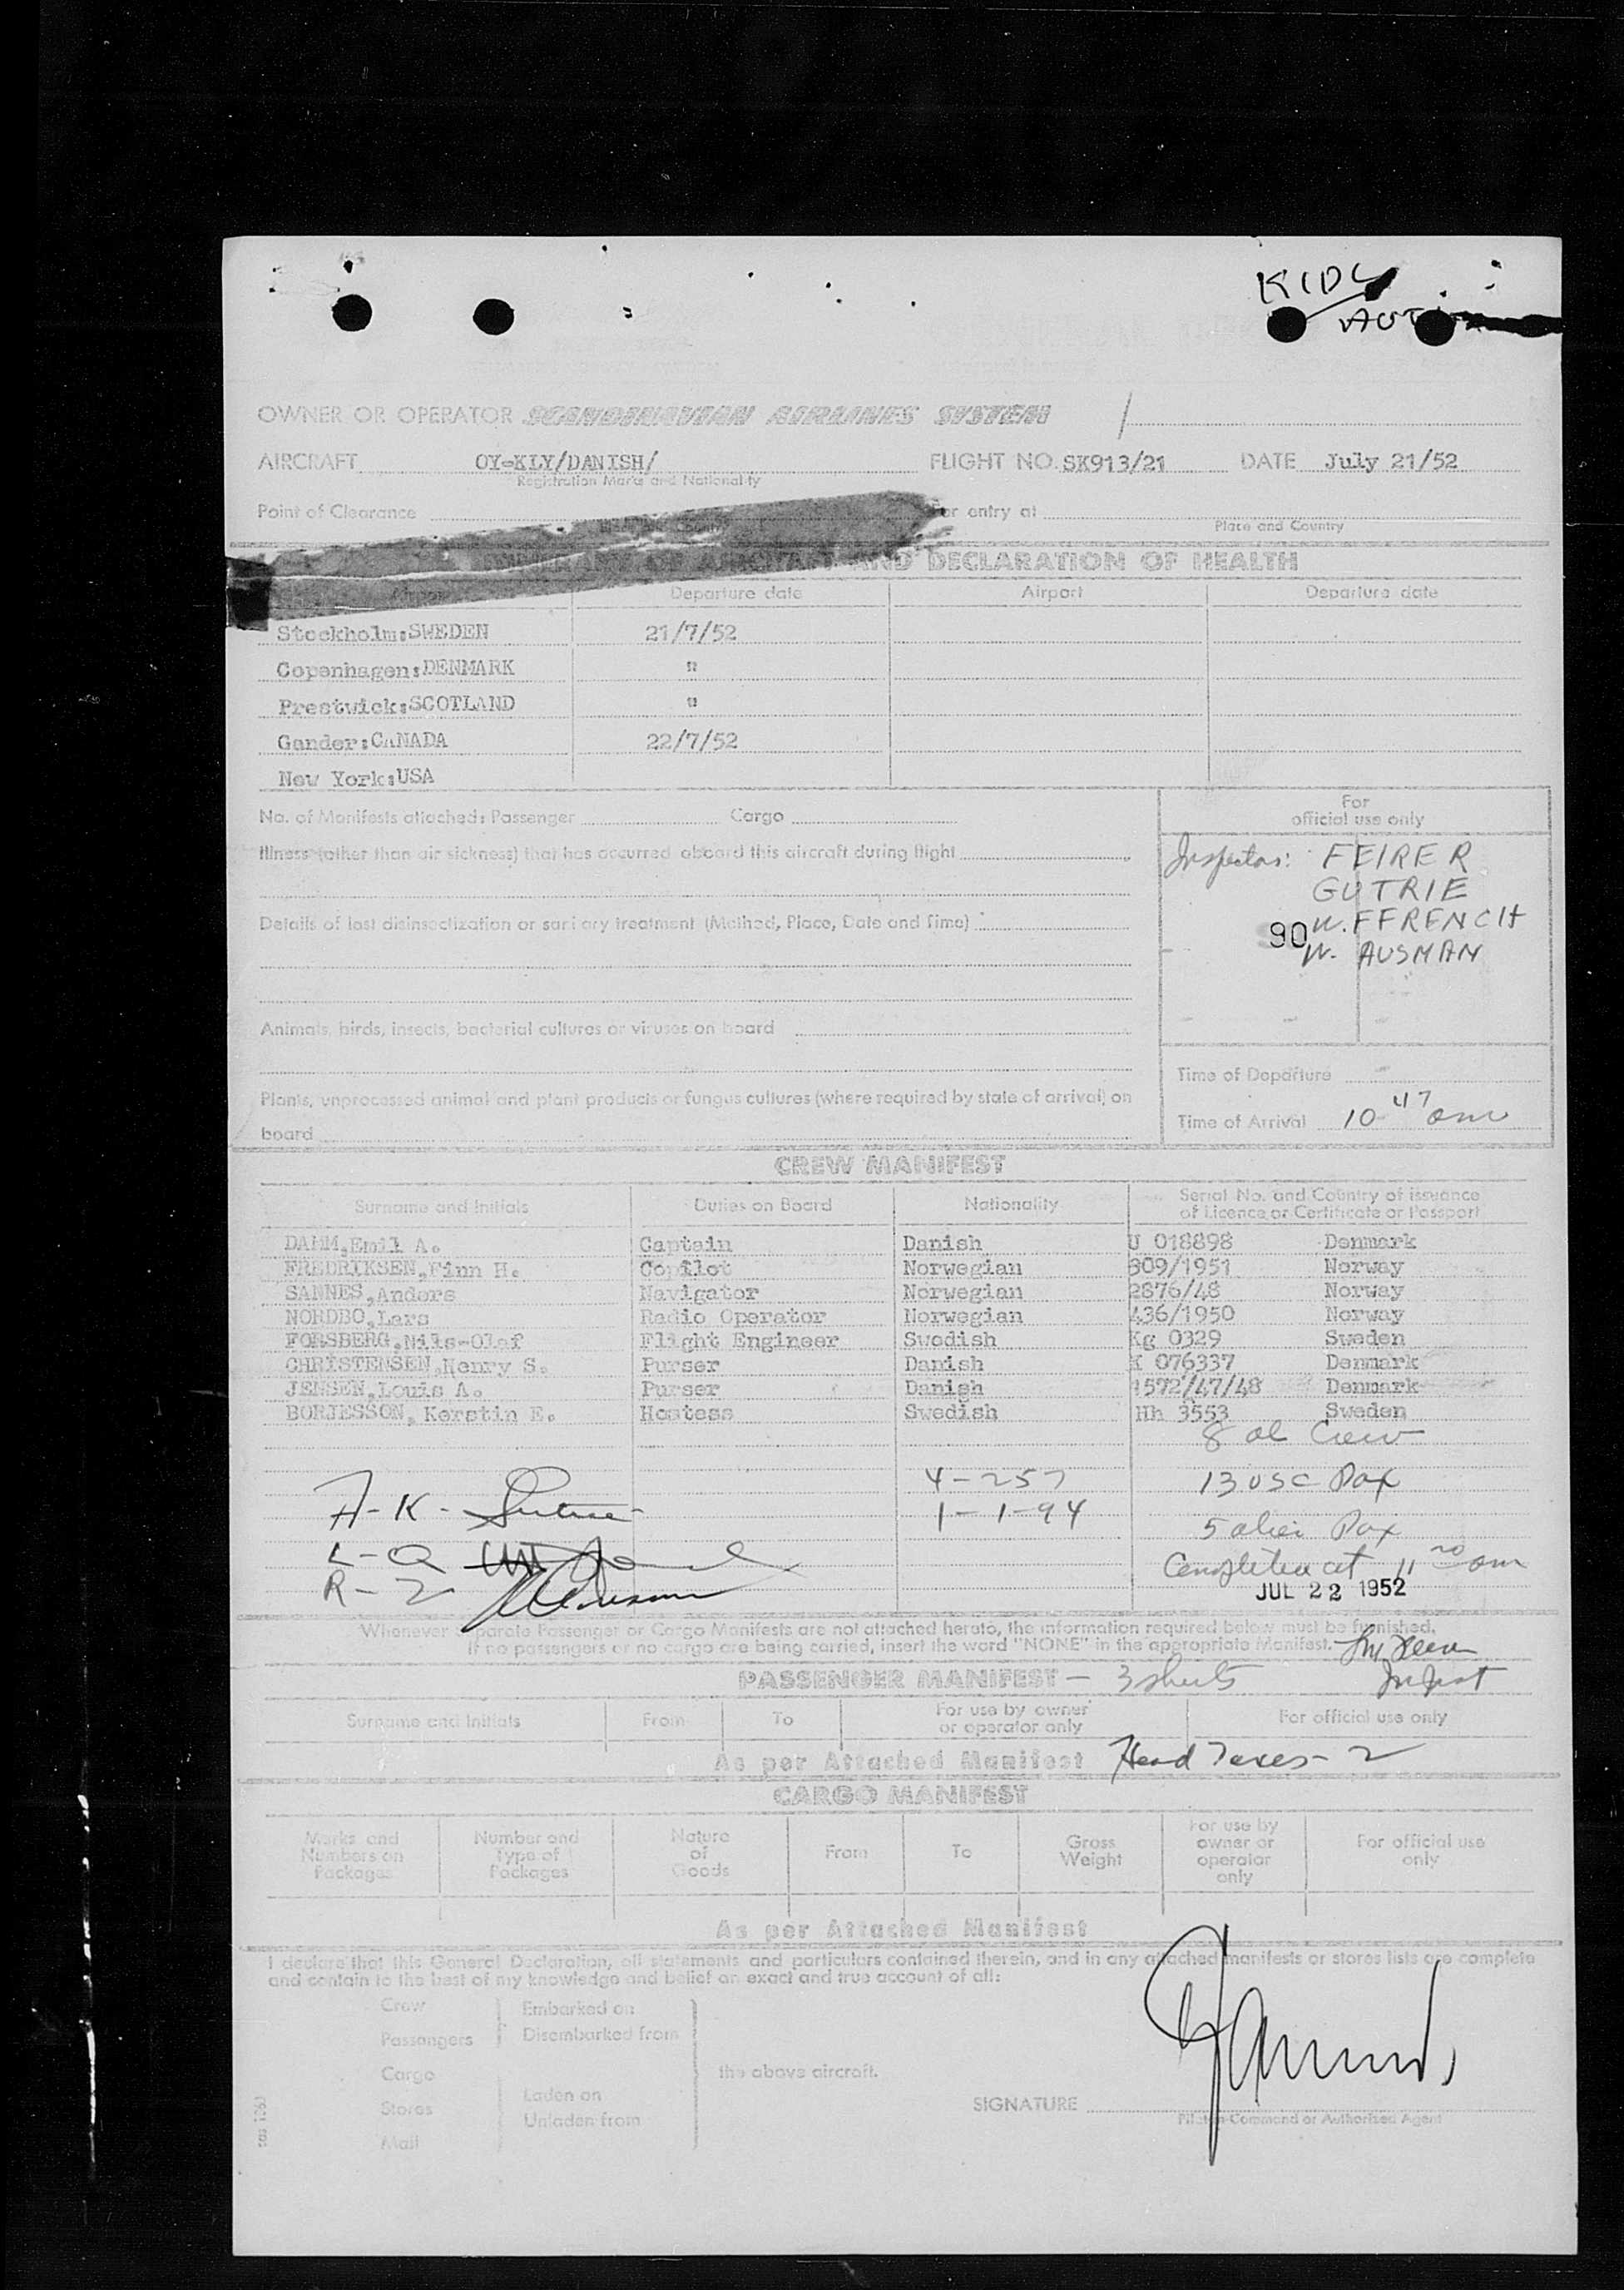 KIDS
OWNER OR OPERATOR SCANDINAVIAN AIRLINES SYSTEM
AIRCRAFT OY-KLY/DANISH/ FLIGHT NO. SK913/21 DATE July 21/52
Registration Marks and Nationality
Point of Clearance For entry at
Place and Country
OF AIRCRAFT AND DECLARATION OF HEALTH
Airport Departure date Airport Departure date
Stockholm:SWEDEN 21/7/52
Copenhagen:DENMARK "
Prestwick:SCOTLAND "
Gander:CANADA 22/7/52
New York:USA
No. of Manifests attached: Passenger Cargo
For
official use only
Illness (other than air sickness) that has occurred aboard this aircraft during flight
Inspectors: FEIRER
GUTRIE
Details of last disinsectization or sanitary treatment (Method, Place, Date and Time)
90 W. FFRENCH
W. AUSMAN
Animals, birds, insects, bacterial cultures or viruses on board
Time of Departure
Plants, unprocessed animal and plant products or fungus cultures (where required by state of arrival) on
board
Time of Arrival 10 47 am
CREW MANIFEST
Surname and Initials Duties on Board Nationality Serial No. and Country of issuance
of Licence or Certificate or Passport
DAMM,Emil A. Captain Danish U 018898 Denmark
FREDRIKSEN,Finn H. Copilot Norwegian 309/1951 Norway
SANNES,Anders Navigator Norwegian 2876/48 Norway
NORDBO,Lars Radio Operator Norwegian 436/1950 Norway
FORSBERG,Nils-Olaf Flight Engineer Swedish Kg 0329 Sweden
CHRISTENSEN,Henry S. Purser Danish K 076337 Denmark
JENSEN,Louis A. Purser Danish 1572/47/48 Denmark
BORJESSON, Kerstin E. Hostess Swedish Hh 3553 Sweden
8 al Crew
4-257 13 USC Pax
A-K-
1-1-94
5 alien Pax
L-Q
Completed at 11 20 am
R-Z
JUL 22 1952
Whenever separate Passenger or Cargo Manifests are not attached hereto, the information required below must be furnished.
If no passengers or no cargo are being carried, insert the word "NONE" in the appropriate Manifest.
PASSENGER MANIFEST - 3 sheets
Surname and Initials From To For use by owner
or operator only For official use only
As per Attached Manifest Head Taxes - 2
CARGO MANIFEST
Marks and
Numbers on
Packages Number and
Type of
Packages Nature
of
Goods From To Gross
Weight For use by
owner or
operator
only For official use
only
As per Attached Manifest
I declare that this General Declaration, all statements and particulars contained therein, and in any attached manifests or stores lists are complete
and contain to the best of my knowledge and belief an exact and true account of all:
Crew Embarked on
Passengers Disembarked from
Cargo the above aircraft.
Laden on
Stores
Unladen from
Mail
SIGNATURE
Pilot-in-Command or Authorized Agent